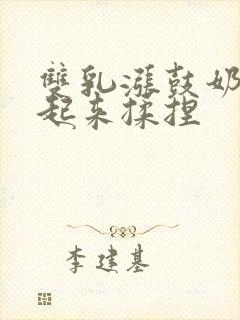 雙乳漲鼓奶
起來揉捏
李建基